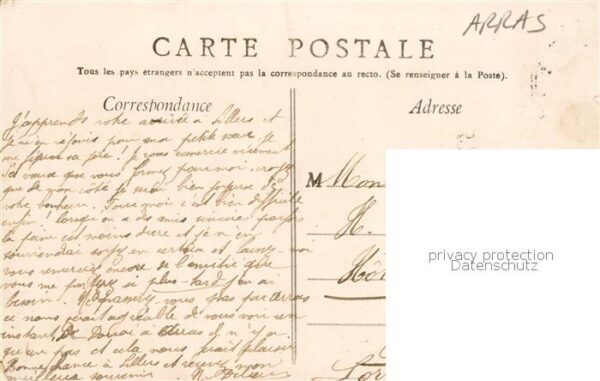 ARRAS
CARTE POSTALE
Tous les pays étrangers n'acceptent pas la correspondance au recto. (Se renseigner à la Poste).
Correspondance
Adresse
J'apprends votre arrivée à Lillers et
je m'en réjouis pour ma petite sœur. Je
me sa fête! Je vous remercie vivement
des vœux que vous pour moi, croyez
que de mon côté je serai bien joyeuse de
votre bonheur. Pour moi c'est bien difficile
enfin! lorsqu'on a des amis sincères parfois
la peine est moins dure et je m'en
souviendrai soyez en certain et moi
vous remercier encore de l'amitié que
vous me portez si plus-tard j'en ai
besoin. vous pas par Arras
ce nous serait agréable de vous voir un
instant. De Douai à Arras il n'y a
qu'un pas et cela nous ferait plaisir
Bonne chance à Lillers et recevez mon
meilleur souvenir
M
H.
privacy protection
Datenschutz